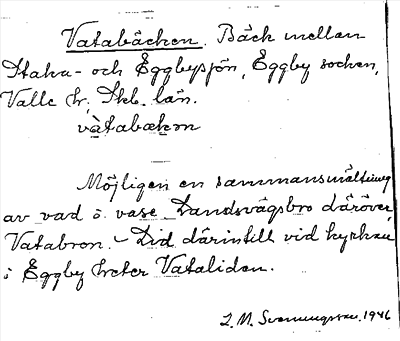 Vatabäcken. Bäck mellan
Staka- och Eggbysjön, Eggby socken,
Valle hr, Skb. län.
vàtabækɷn
Möjligen en sammansmältning
av vad o. vase. Landsvägsbro däröver,
Vatabron. – Lid därintill vid kyrkan
i Eggby heter Vataliden.
L. M. Svenungsson. 1946